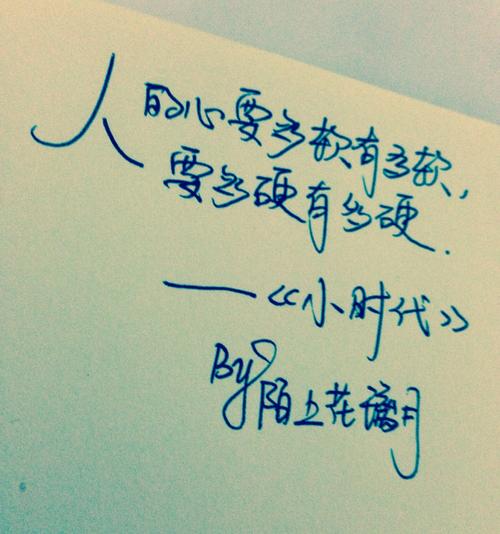 人的心要多软有多软，
要多硬有多硬.
——《小时代》
By陌上花璃月